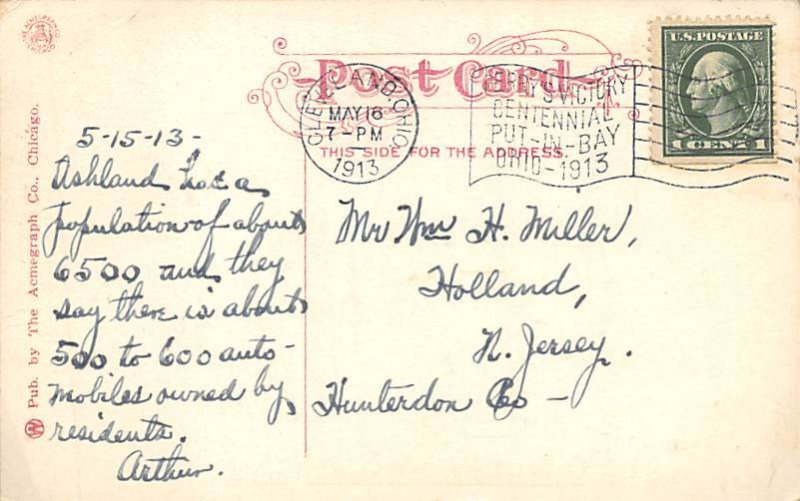 Post Card
THIS SIDE FOR THE ADDRESS.
CLEVELAND, OHIO.
MAY 16
7-PM
1913
PERRY'S VICTORY
CENTENNIAL
PUT-IN-BAY
OHIO-1913
U.S. POSTAGE
1 CENT 1
Pub. by The Acmegraph Co., Chicago.
5-15-13-
Ashland has a
population of about
6500 and they
say there is about
500 to 600 auto-
mobiles owned by
residents.
Arthur.
Mr Wm H. Miller,
Holland,
N. Jersey.
Hunterdon Co -